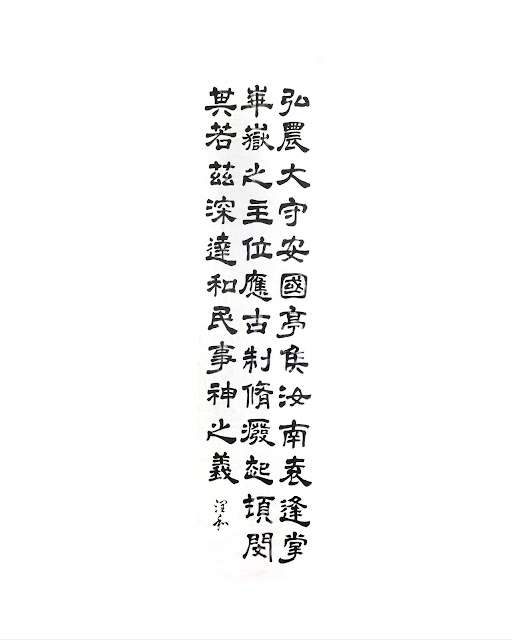 弘農大守安國亭侯汝南袁逢掌
崋嶽之主位應古制脩癈起頓閔
其若茲深達和民事神之義